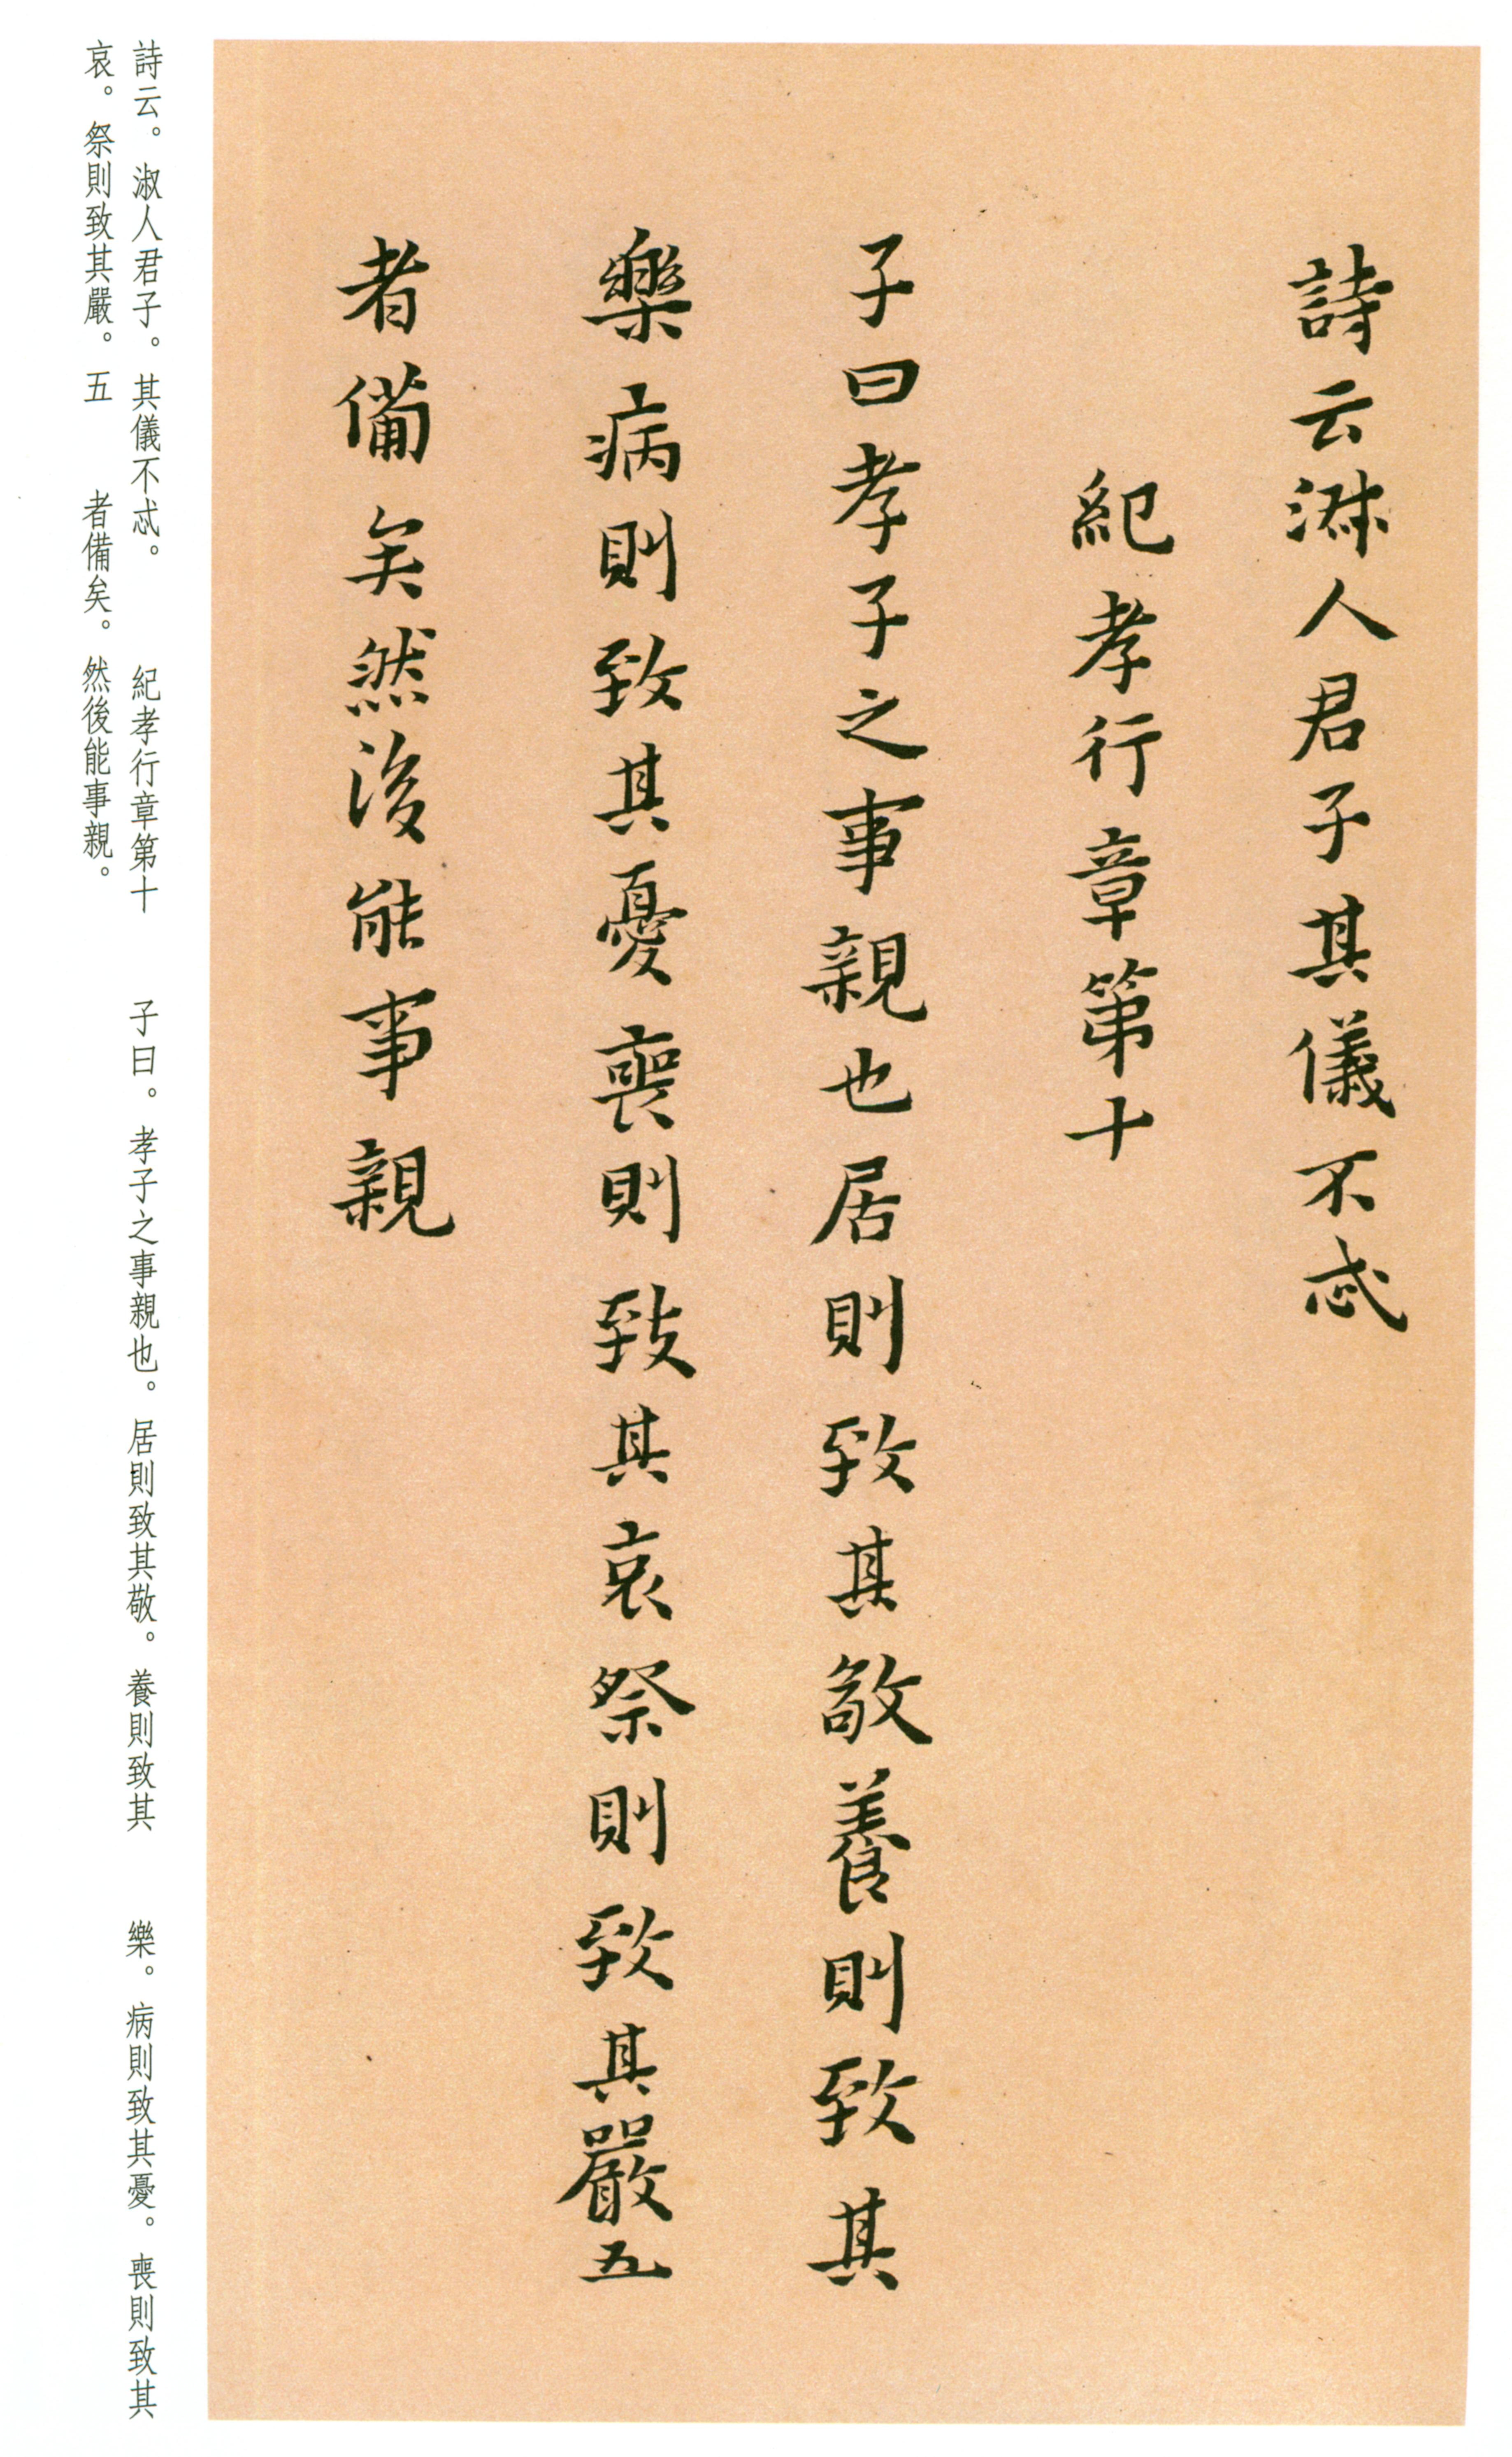 詩云淑人君子其儀不忒
紀孝行章第十
子曰孝子之事親也居則致其敬養則致其
樂病則致其憂喪則致其哀祭則致其嚴五
者備矣然後能事親
詩云。淑人君子。其儀不忒。 紀孝行章第十 子曰。孝子之事親也。居則致其敬。養則致其 樂。病則致其憂。喪則致其
哀。祭則致其嚴。五 者備矣。然後能事親。